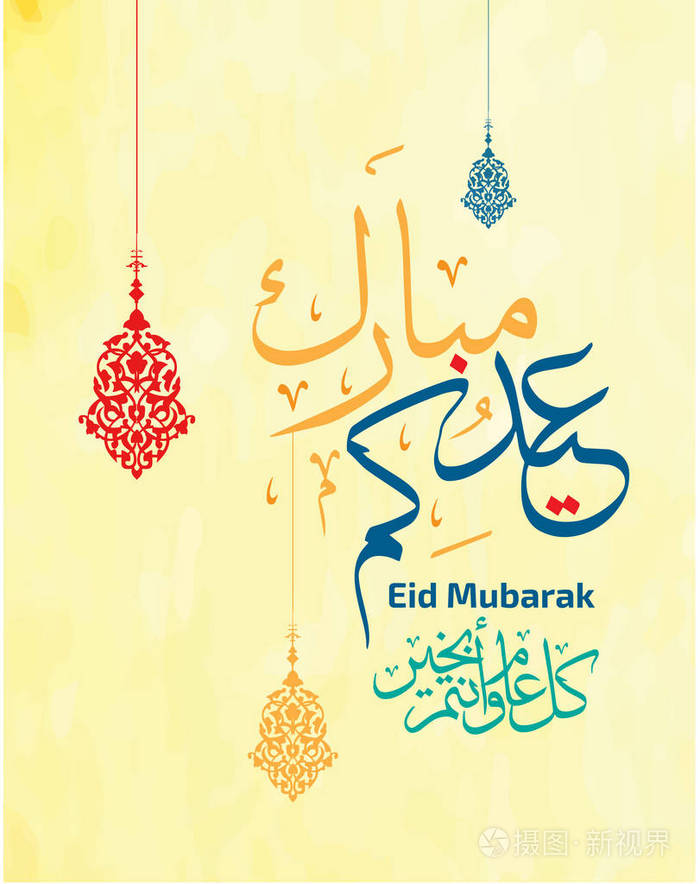 عيدكم
مبارك
Eid Mubarak
كل عام وأنتم بخير
摄图·新视界